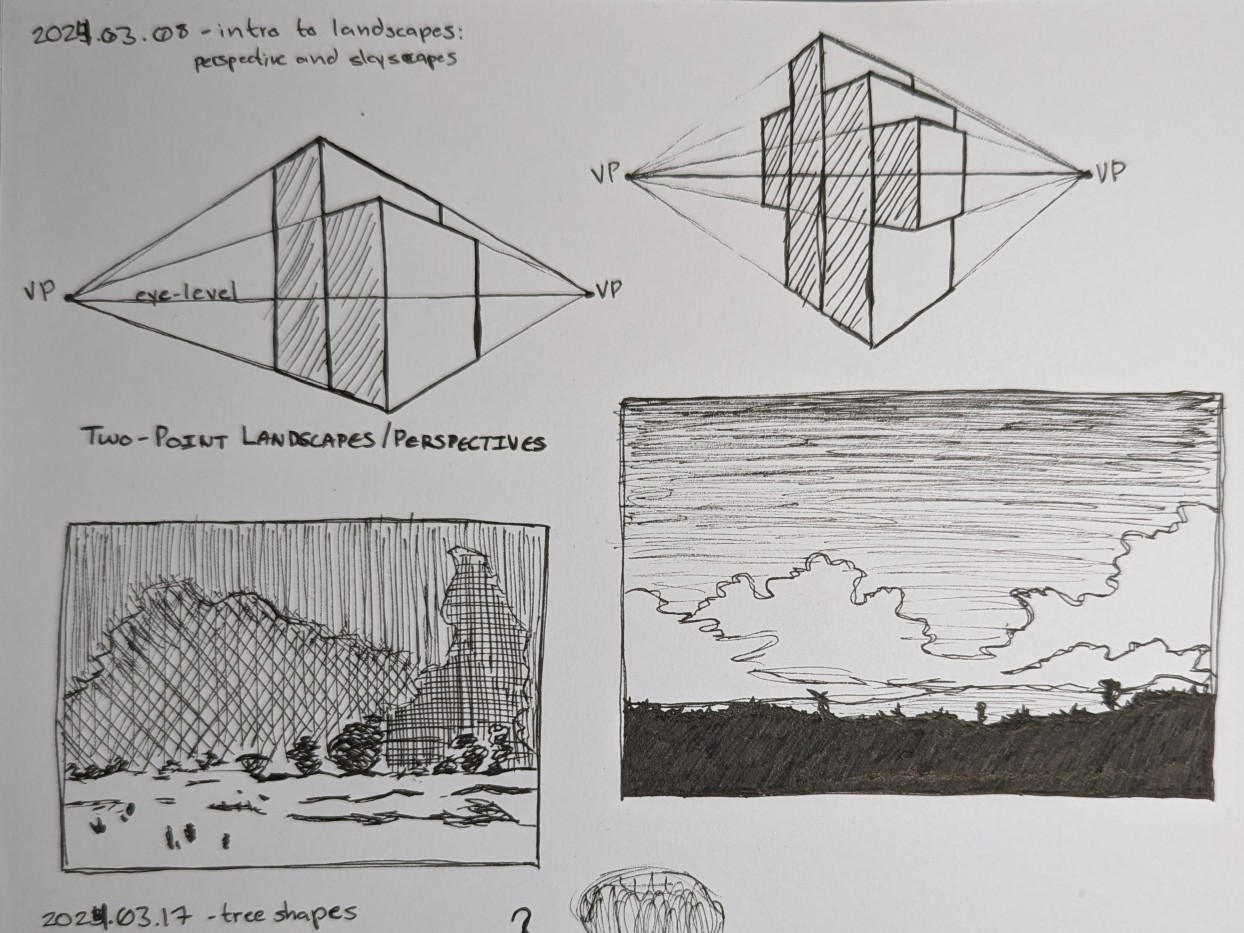 2024.03.08 - intro to landscapes:
perspective and skyscapes
VP
VP
VP
eye-level
VP
TWO-POINT LANDSCAPES/PERSPECTIVES
2024.03.17 - tree shapes
?